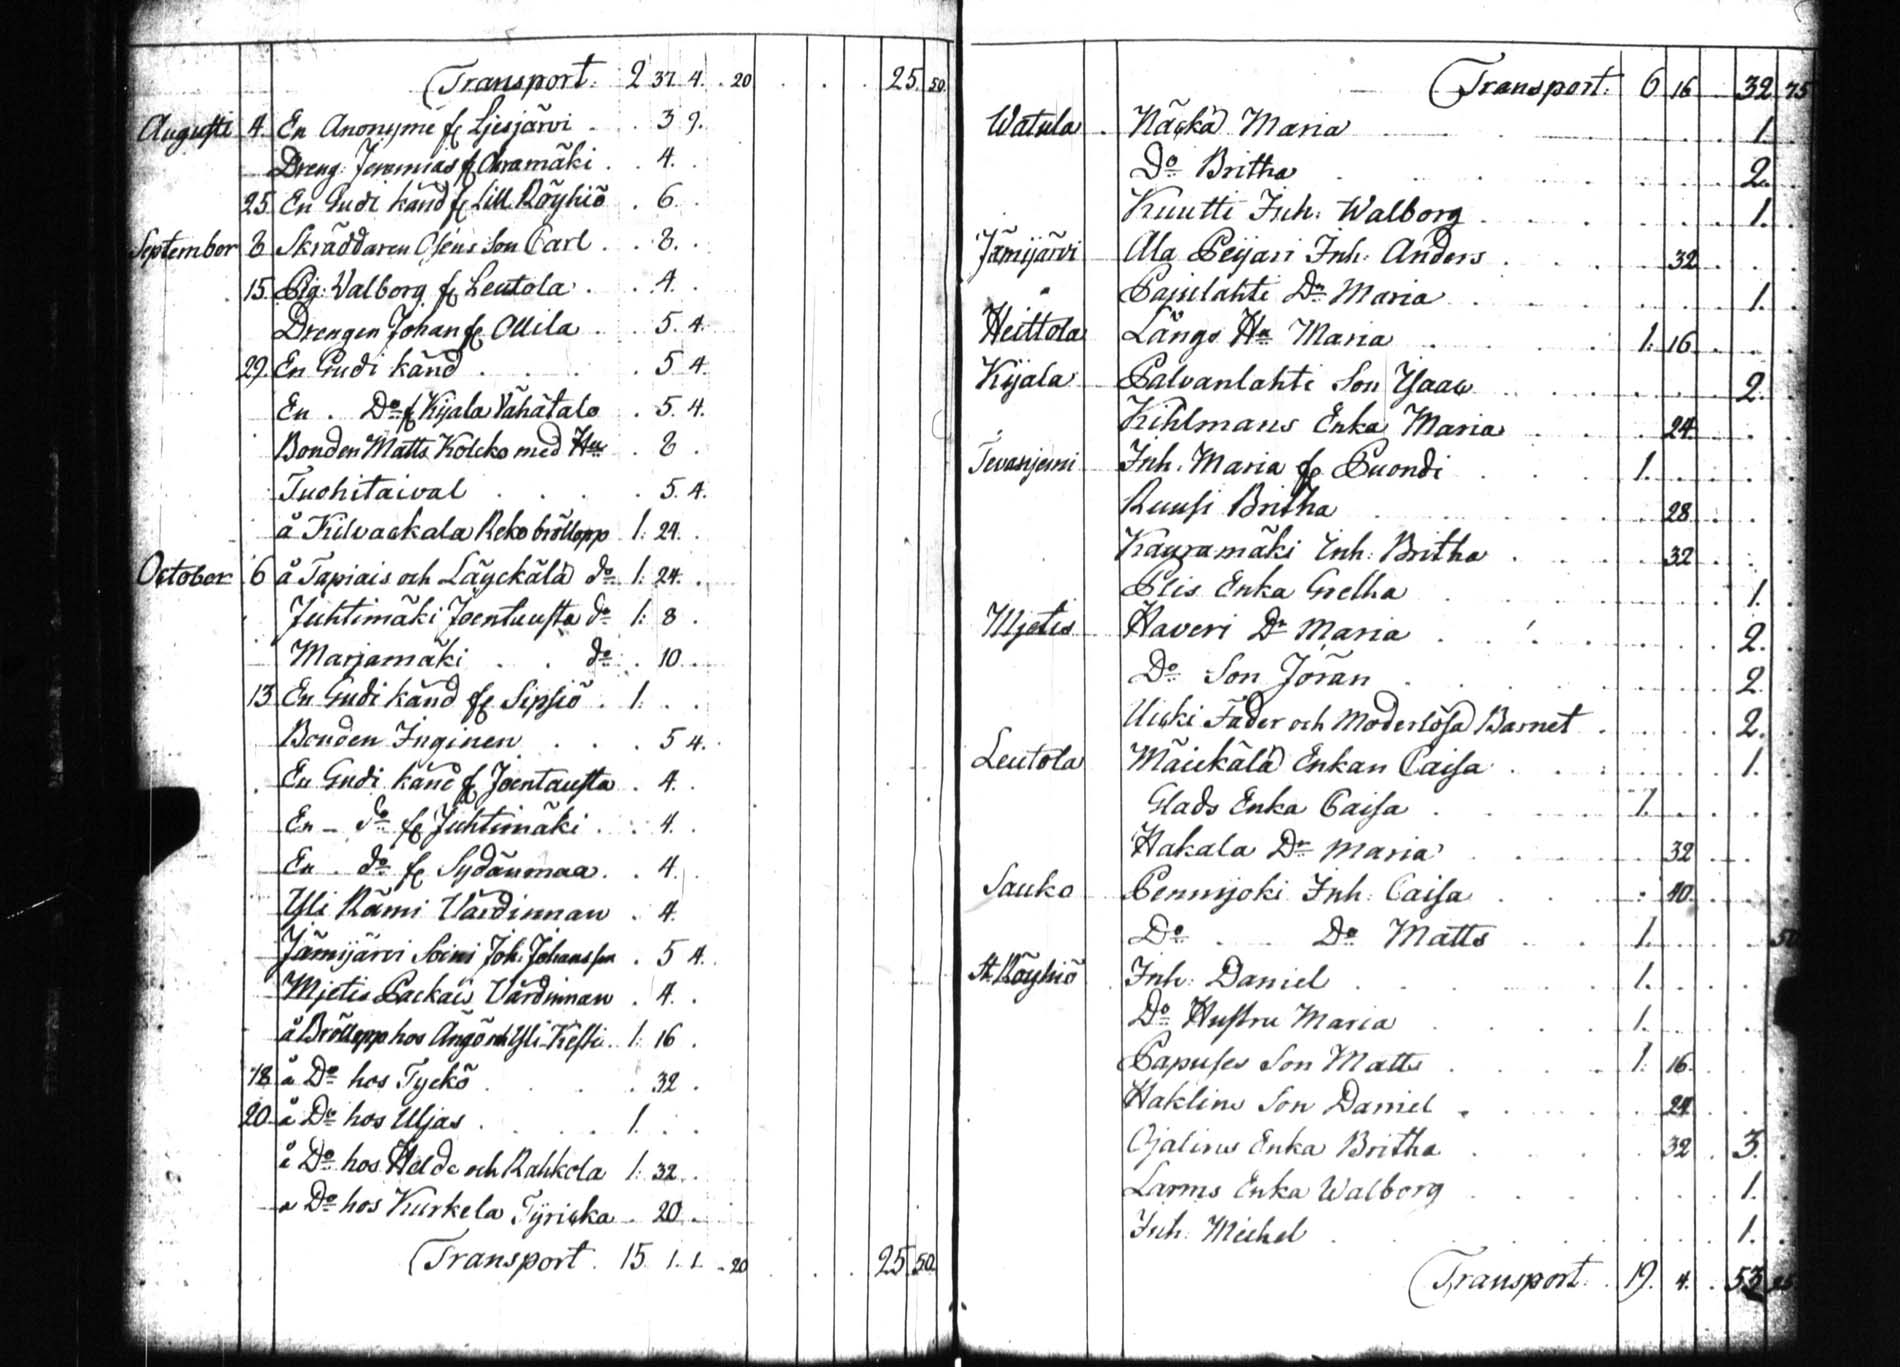 Transport. 2 37. 4. . 20 25. 50.
Augusti 4. En Anonyme fr Ljesjärvi . . 3 9.
Dreng Jeremias fr Auramäki . . 4.
25. En Gudi känd fr Lill Röyhiö . 6.
September 8 Skräddaren Oséns Son Carl . . 8.
15. Pig: Walborg fr Leutola . . 4.
Drengen Johan fr Ollila . . 5. 4.
29. En Gudi känd . . . 5 4.
En . Do fr Kijala Vähätalo . 5. 4.
Bonden Matts Kolcko med Hu . 8 .
Tuohitaival . . . 5. 4.
å Kilvackala Reko bröllopp 1: 24.
October 6 å Tapiais och Läyckälä do 1: 24.
Juhtimäki Joentausta do 1: 8 .
Marjamäki . . do . 10.
13. En Gudi känd fr Sipsiö . 1. . .
Bonden Inginen . . . 5 4.
En Gudi känd fr Joentausta . 4.
En - do fr Juhtimäki . . 4.
En . do fr Sydänmaa . . 4.
Yli Rämi Värdinnan . 4.
Jämijärvi Soini Joh: Johansson . 5 4.
Mjetis Packais Värdinnan . 4.
å Bröllopp hos Ängö och Yli-Kesti . 1: 16 .
18 å Do hos Tyckö . . . 32 .
20. å Do hos Uljas . . . 1. . .
å Do hos Heldo och Rahkola 1: 32 .
å Do hos Kurkela Tyriska . 20 .
Transport . 15. 1. 1. . 20 25. 50.
Transport. 6 16 32 75
Watula . Näckä Maria 1.
Do Britha 2.
Kuutti Inh: Walborg 1.
Jämijärvi Ala Peijari Inh: Anders 32
Pajulahti Dr Maria 1.
Heittola Långs Hu Maria 1: 16
Kijala Palvanlahti Son Ysaac 2.
Kihlmans Enka Maria 24
Tevanjemi Inh: Maria fr Puondi 1.
Ruusi Britha 28
Kauramäki Inh: Britha 32
Plis Enka Gretha 1.
Mjetis Haveri Dr Maria 2.
Do Son Jöran 2.
Uicki Fader och Moderlösa Barnet 2.
Leutola Mäickälä Enkan Caisa 1.
Glads Enka Caisa 1.
Hakala Dr Maria 32
Sauko Pennijoki Inh: Caisa 40.
Do . . Do Matts 1. 50
St. Röyhiö Inh: Daniel 1.
Do Hustru Maria 1.
Papuses Son Matts 1: 16.
Haklins Son Daniel 24
Ojalins Enka Britha 32 3.
Larms Enka Walborg 1.
Inh: Michel 1.
Transport . 19. 4. 53 25